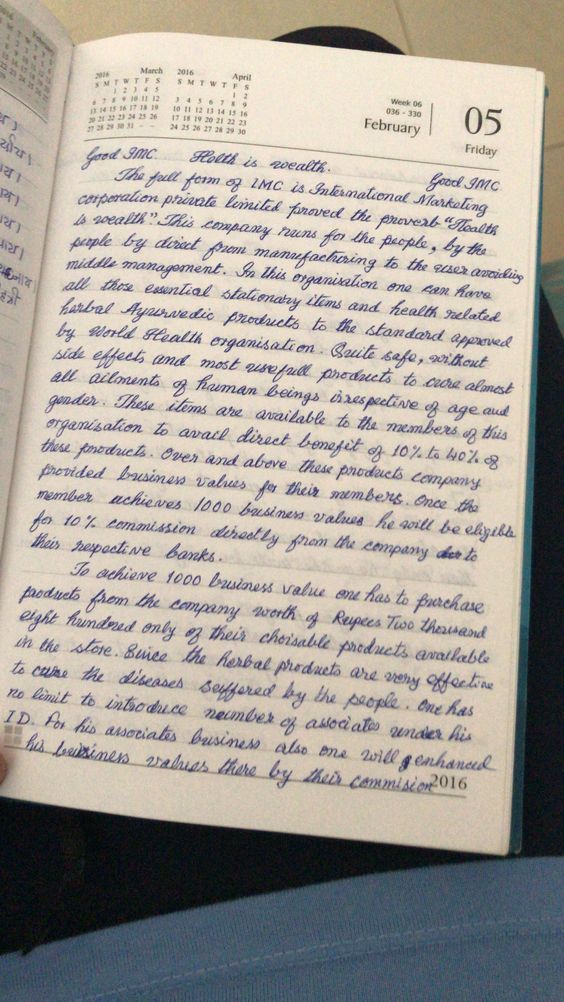 2016 March
S M T W T F S
1 2 3 4 5
6 7 8 9 10 11 12
13 14 15 16 17 18 19
20 21 22 23 24 25 26
27 28 29 30 31 - -
2016 April
S M T W T F S
1 2
3 4 5 6 7 8 9
10 11 12 13 14 15 16
17 18 19 20 21 22 23
24 25 26 27 28 29 30
Week 06
036 - 330
February
05
Friday
Good IMC. Helth is wealth. Good IMC
The full form of IMC is International Marketing
corporation private limited proved the proverb "Health
is wealth" This company runs for the people, by the
people by direct from manufachiring to the user avoiding
middle management. In this organisation one can have
all those essential stationary items and health related
herbal Ayurvedic products to the standard approved
by World Health organisation. Quite safe, without
side effects and most usefull products to cure almost
all ailments of human beings irrespective of age and
gender. These items are available to the members of this
organisation to avail direct benefit of 10% to 40% of
these products. Over and above these products company
provided business values for their members. Once the
member achieves 1000 business values he will be eligible
for 10% commission directly from the company to
their respective banks.
To achieve 1000 business value one has to purchase
products from the company worth of Rupees Two thousand
eight hundred only of their choisable products available
in the store. Since the herbal products are very effective
to cure the diseases suffered by the people. One has
no limit to introduce number of associates under his
I D. For his associates business also one will enhanced
his business values there by their commision
2016